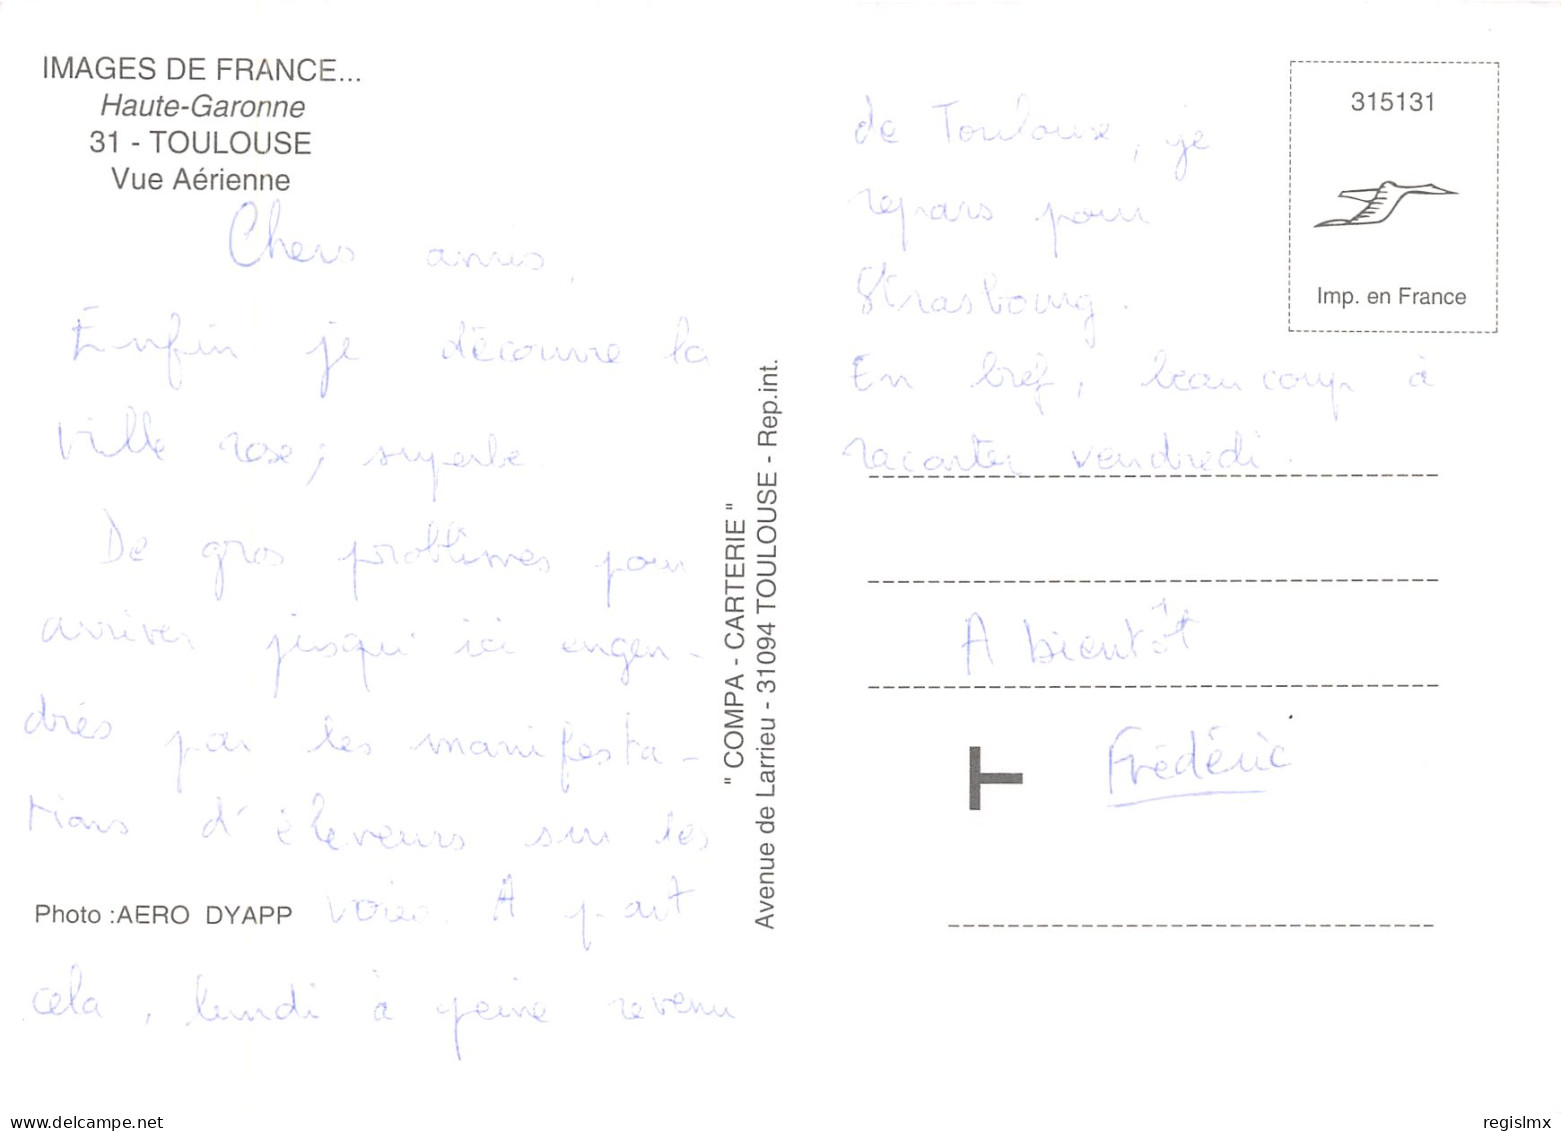 IMAGES DE FRANCE...
Haute-Garonne
31 - TOULOUSE
Vue Aérienne
Chers amis,
Enfin je découvre la
ville rose ; superbe
De gros problèmes pour
arriver jusqu'ici engen-
drés par les manifesta-
tions d'éleveurs sur les
voies. A part
cela, lundi à peine revenu
Photo :AERO DYAPP
" COMPA - CARTERIE "
Avenue de Larrieu - 31094 TOULOUSE - Rep.int.
de Toulouse, je
repars pour
Strasbourg.
En bref, beaucoup à
raconter vendredi.
A bientôt
Frédéric
315131
Imp. en France
T
www.delcampe.net
regislmx